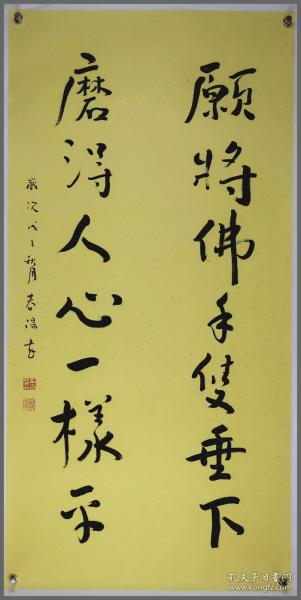 願將佛手雙垂下
磨得人心一樣平
歲次戊子秋月春鴻書
孔夫子旧书网